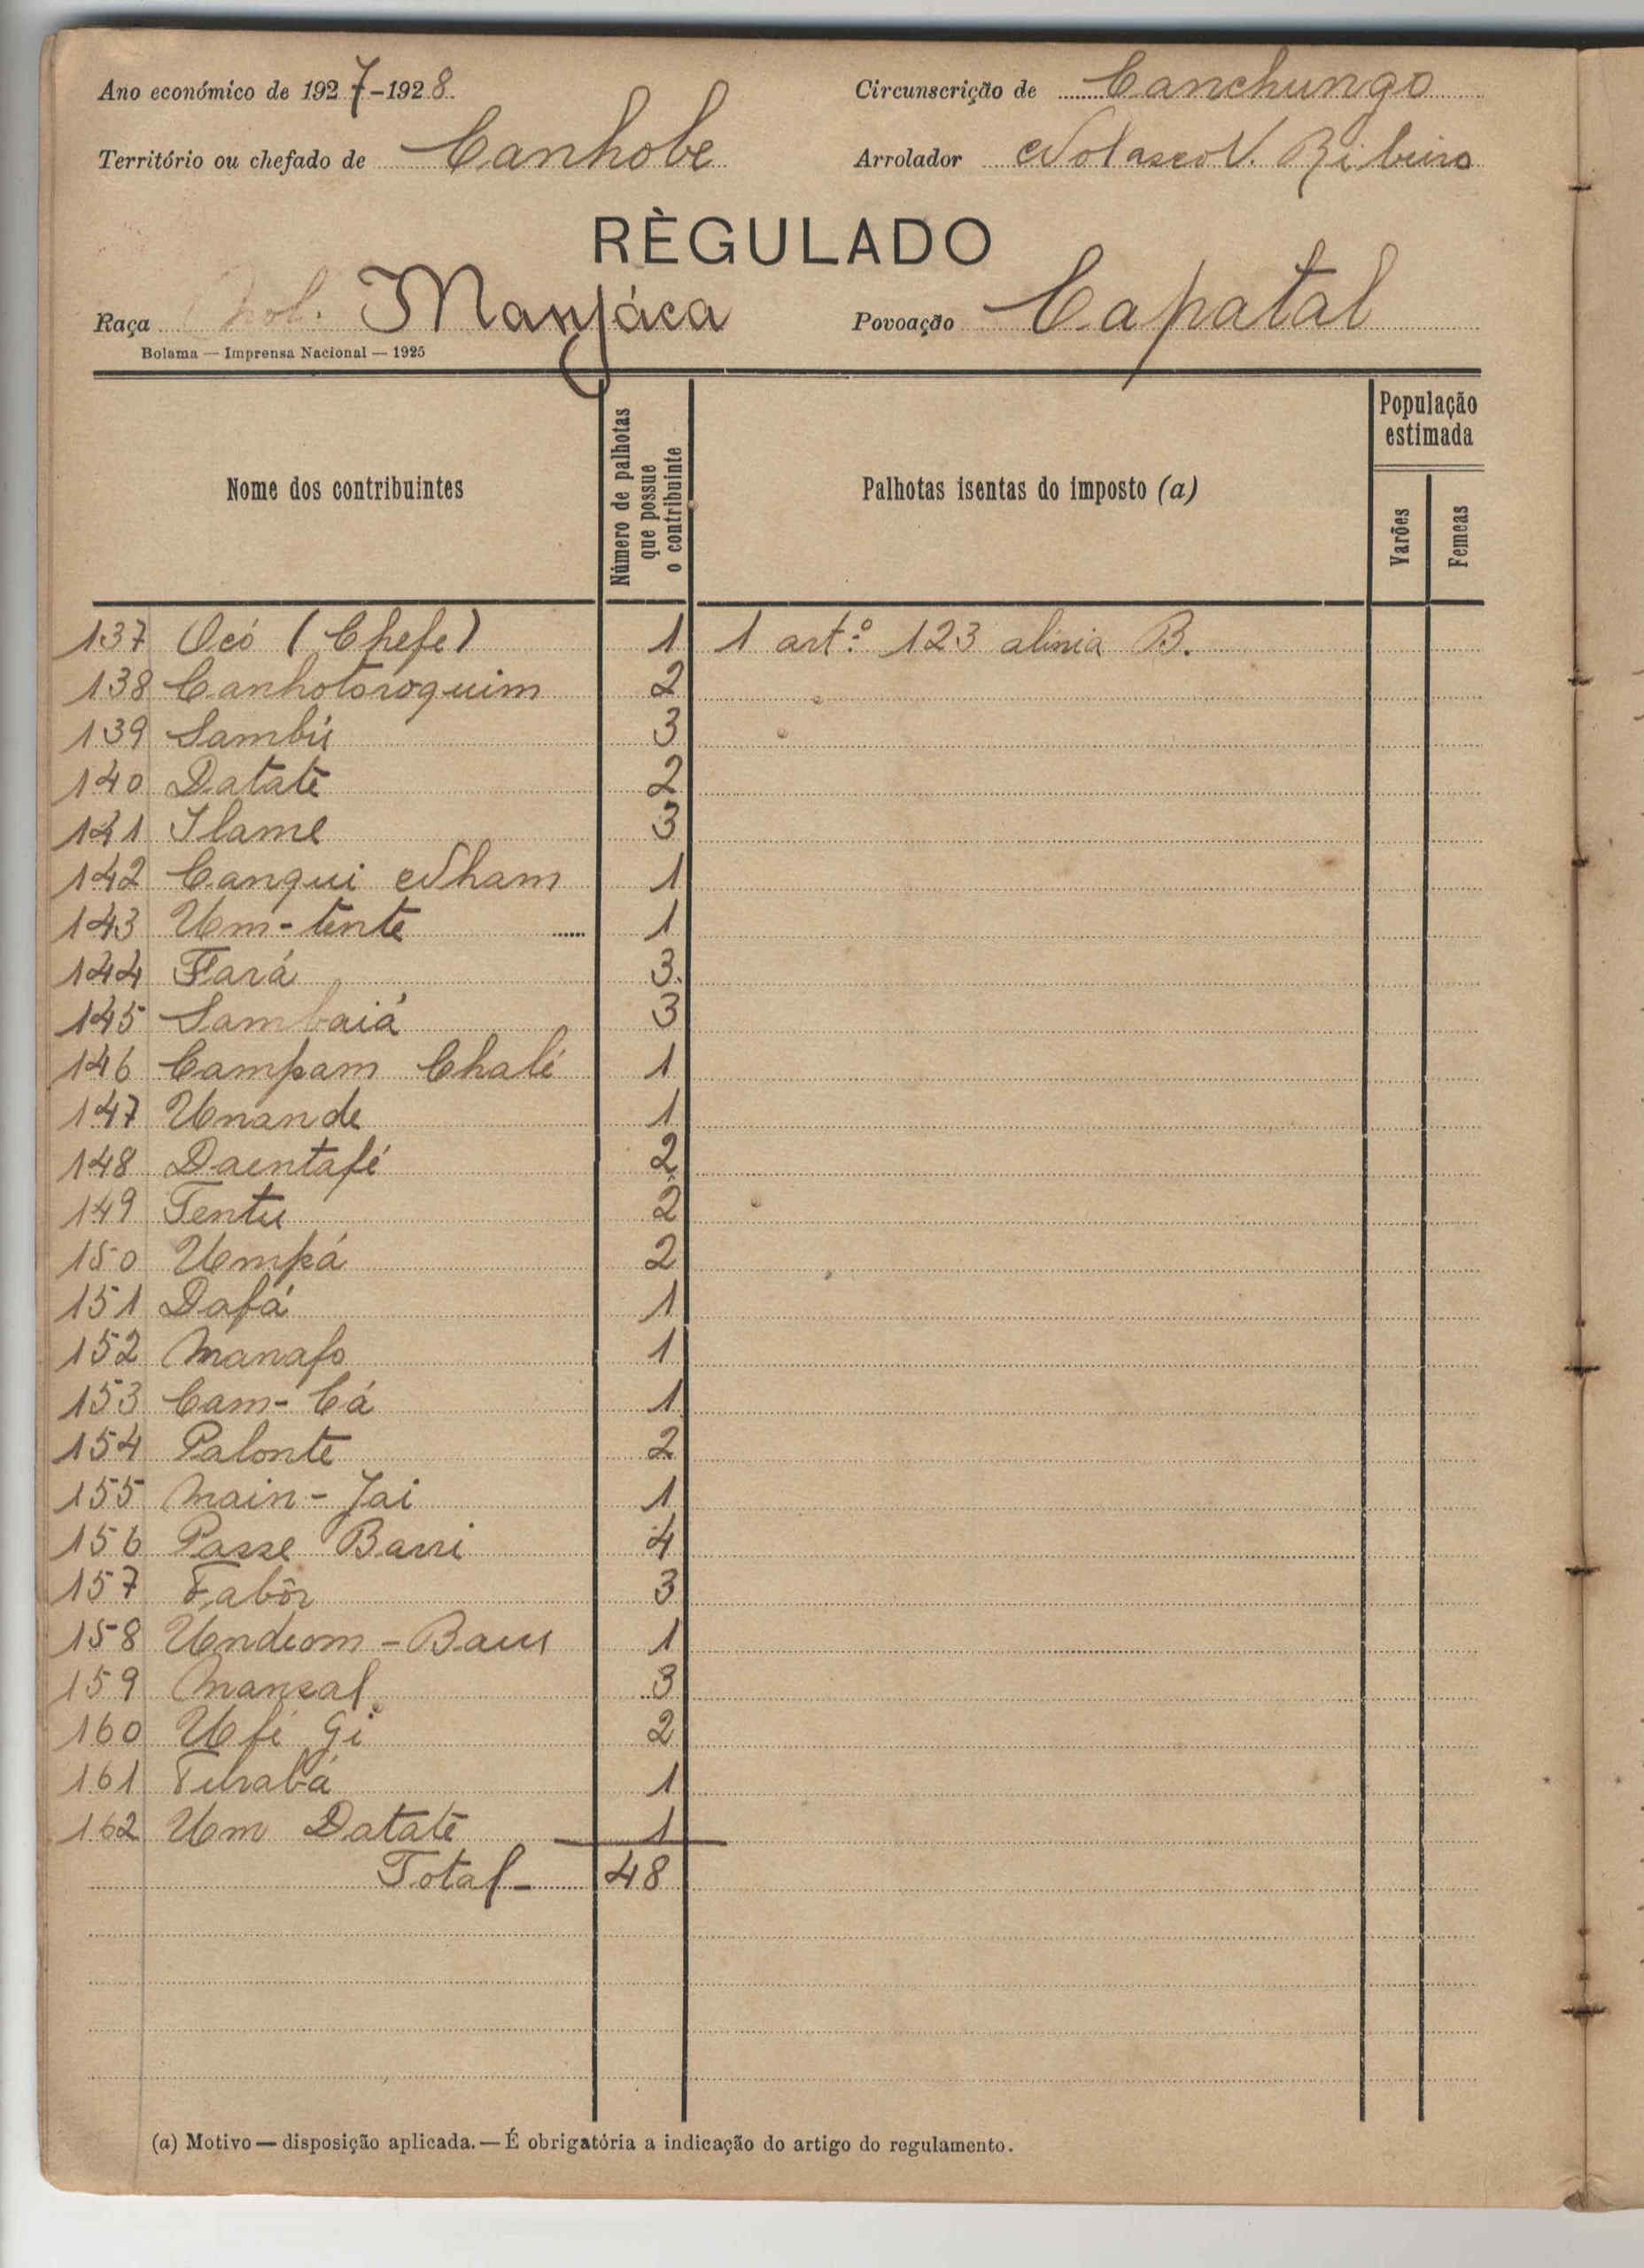 Ano económico de 1927-1928
Circunscrição de Canchungo
Território ou chefado de Canhobe
Arrolador Nolasco V. Ribeiro
RÈGULADO
Raça Manjáca
Povoação Capatal
Bolama — Imprensa Nacional — 1925
Nome dos contribuintes
Número de palhotas que possue o contribuinte
Palhotas isentas do imposto (a)
População estimada
Varões
Femeas
137 Ocó (Chefe) 1 1 art.º 123 alinia B.
138 Canhotoroquim 2
139 Sambú 3
140 Datate 2
141 Ilame 3
142 Canqui Nham 1
143 Um-tente 1
144 Fará 3
145 Sambaiá 3
146 Campam Chalé 1
147 Unande 1
148 Daentafé 2
149 Tentu 2
150 Umpá 2
151 Dafá 1
152 Manafo 1
153 Cam-Cá 1
154 Palonte 2
155 Main-Jai 1
156 Passe Barri 4
157 Fabôr 3
158 1
159 Mansal 3
160 Ufé Gi 2
161 1
162 Um Datate 1
Total - 48
(a) Motivo — disposição aplicada. — É obrigatória a indicação do artigo do regulamento.